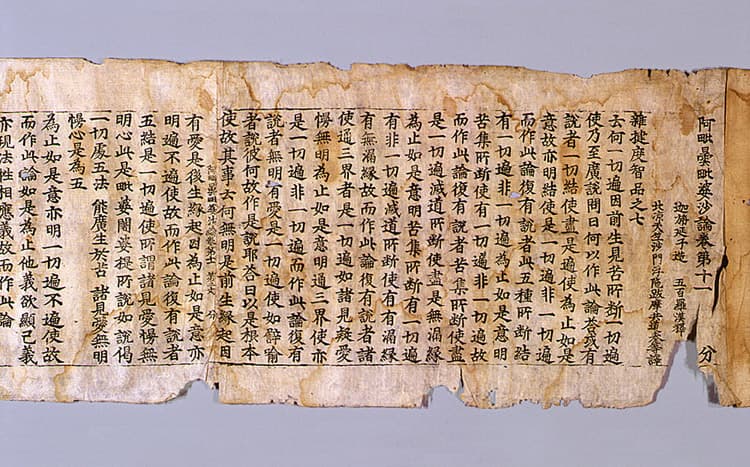 阿毗曇毗婆沙論卷第十一 分
迦旃延子造 五百羅漢釋
北涼天竺沙門浮陁跋摩共道泰等譯
雜揵度智品之七
云何一切遍因前生見苦所斷一切遍
使乃至廣說問曰何以作此論荅或有
說者一切結使盡是遍使為止如是
意故亦明結使是一切遍非一切遍
而作此論復有說者此五種所斷結
有一切遍非一切遍為止如是意明
苦集所斷使有一切遍非一切遍故
而作此論復有說者苦集所斷使盡
是一切遍滅道所斷使盡是無漏緣
為止如是意明苦集所斷有一切遍
有非一切遍滅道所斷使有有漏緣
有無漏緣故而作此論復有說者諸
使通三界者是一切遍如諸見疑愛
慢無明為止如是意明通三界使亦
是一切遍非一切遍而作此論復有
說者無明有愛是一切遍使如譬喻
者說彼何故作是說耶荅曰以是根本
使故其事云何無明是前生緣起因
有愛是後生緣起因為止如是意亦
明遍不遍使故而作此論復有說者
五結是一切遍使所謂諸見愛慢無
明心此是毗婆闍婆提所說如說偈
一切處五法 能廣生於苦 諸見愛無明
慢心是為五
為止如是意亦明一切遍不遍使故
而作此論如是為止他義欲顯己義
亦現法性相應義故而作此論